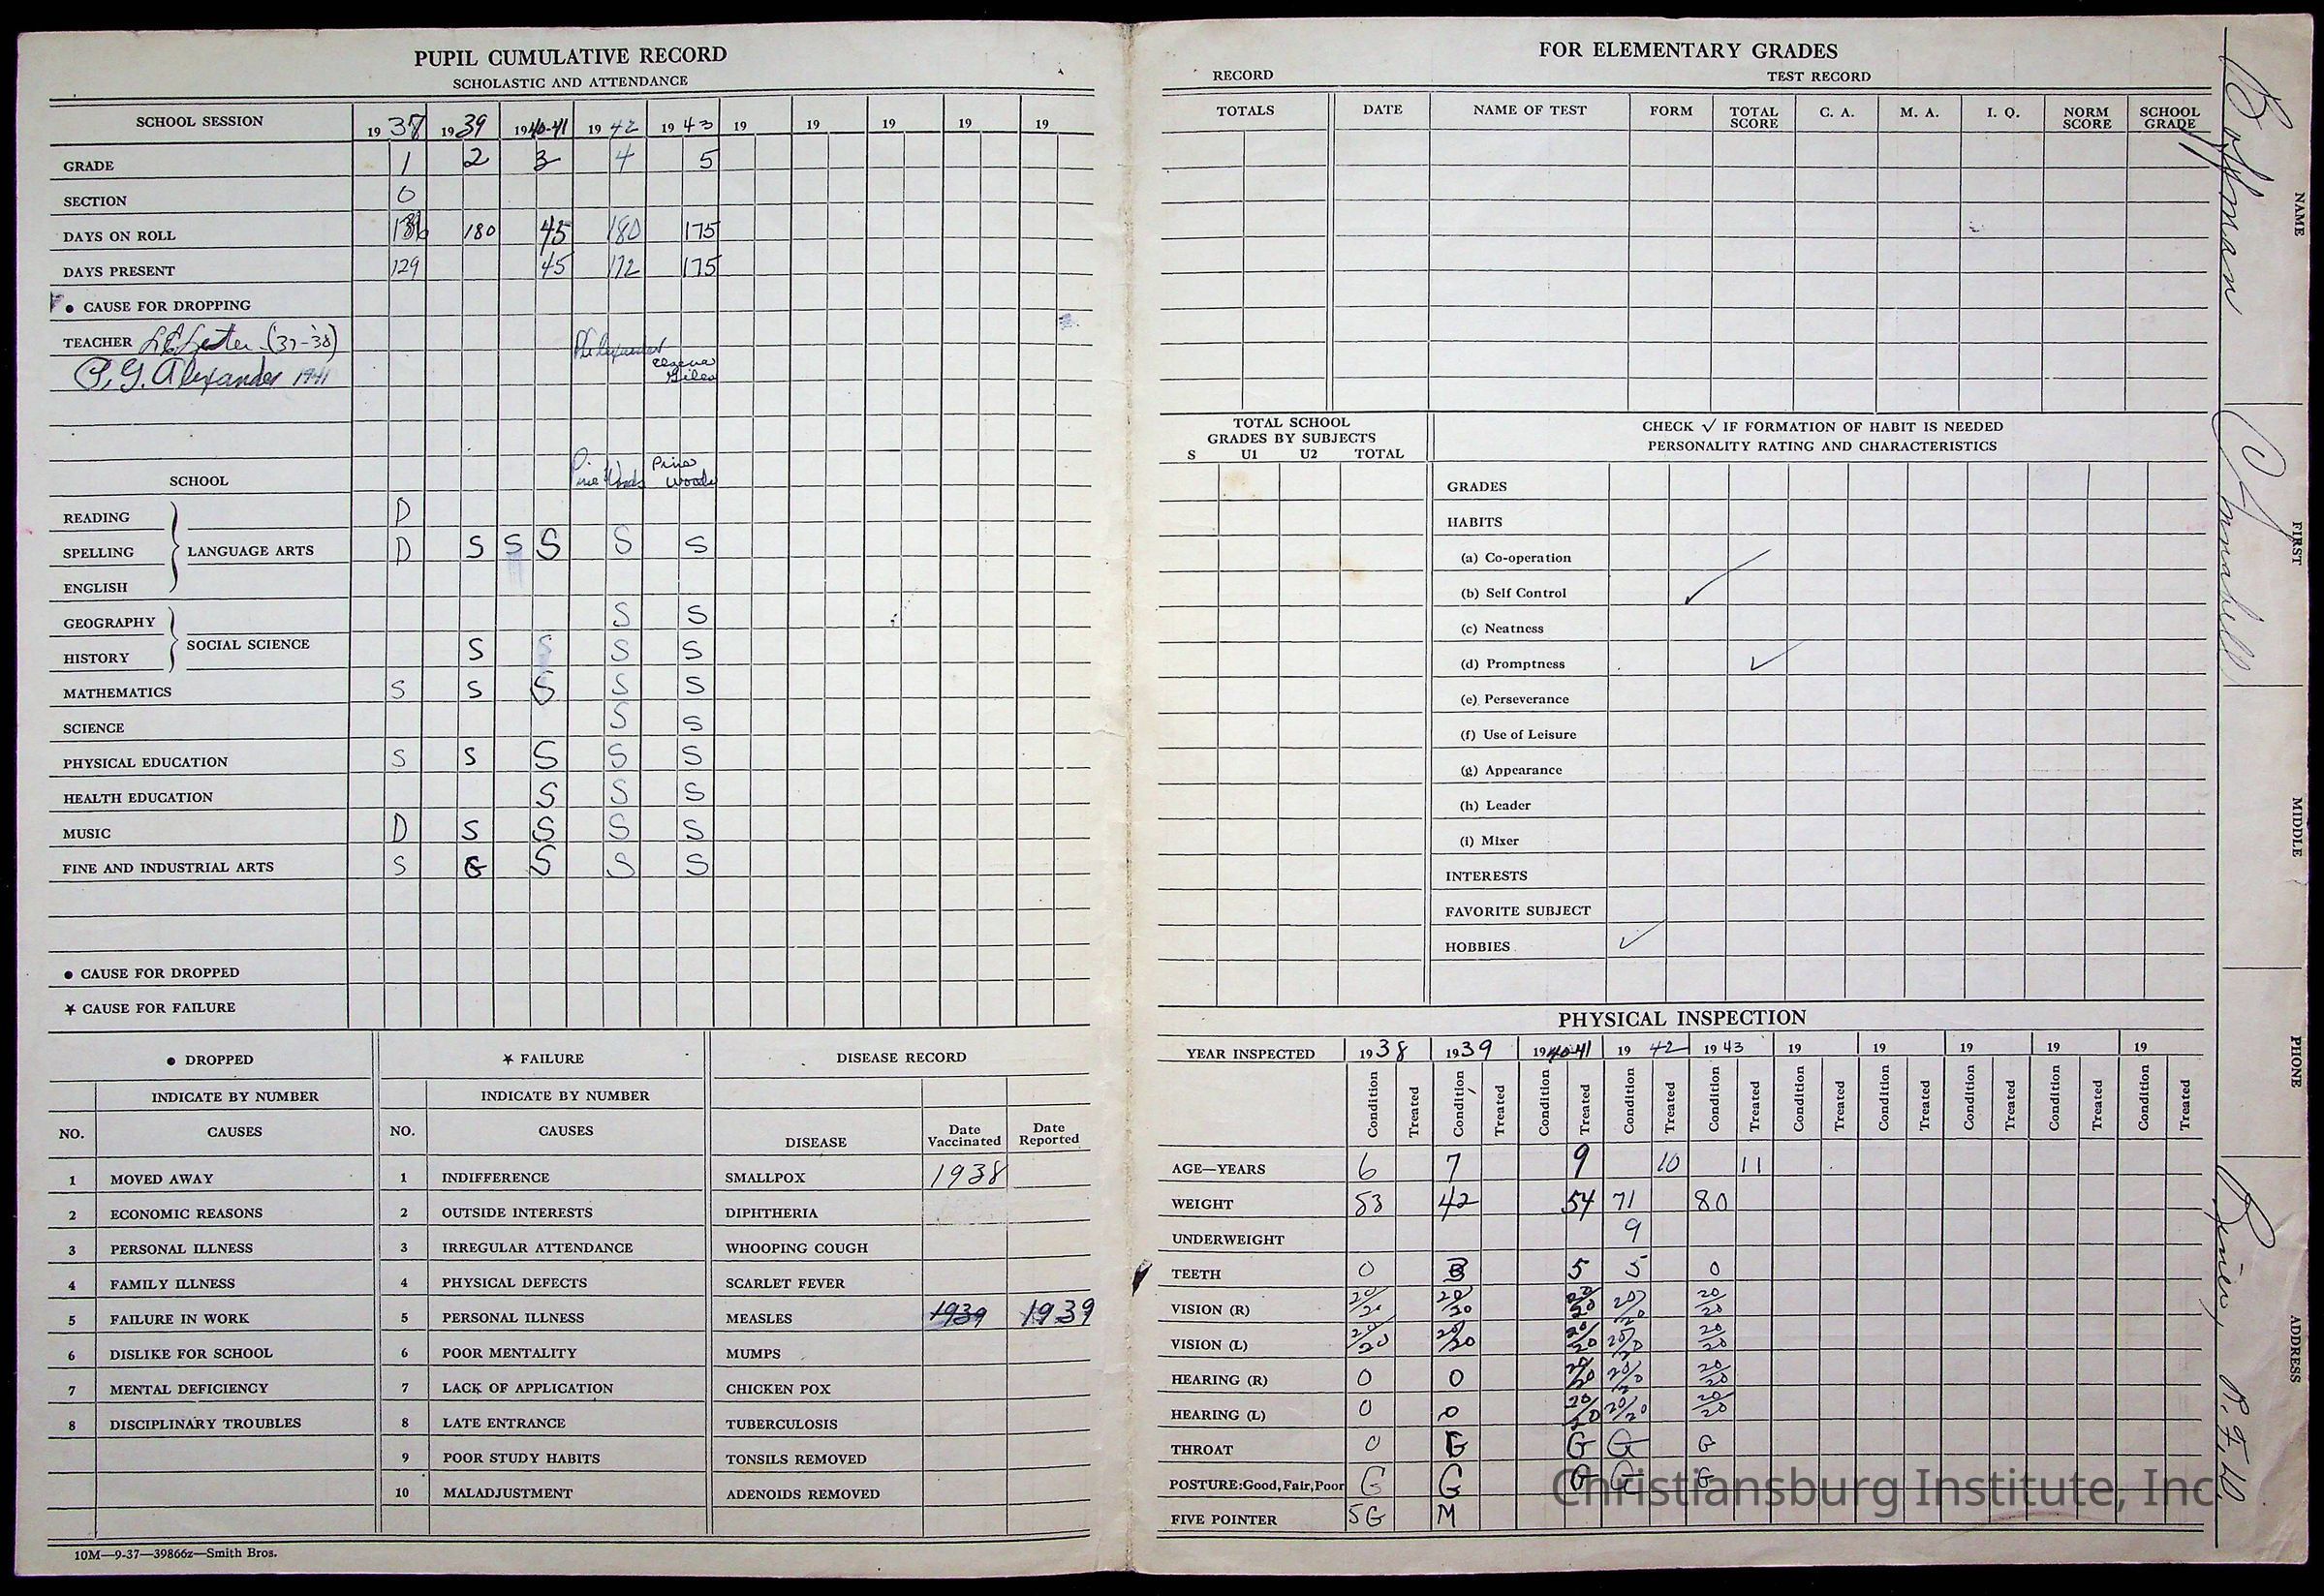 PUPIL CUMULATIVE RECORD
SCHOLASTIC AND ATTENDANCE
SCHOOL SESSION 1937 1939 1940-41 1942 1943 19 19 19 19 19
GRADE 1 2 3 4 5
SECTION 0
DAYS ON ROLL 180 45 180 175
DAYS PRESENT 129 45 172 175
• CAUSE FOR DROPPING
TEACHER Lester (37-38)
P. G. Alexander 1941 Giles
SCHOOL Pine Woods Pine Woods
READING D
SPELLING LANGUAGE ARTS D S S S S S
ENGLISH
GEOGRAPHY S S
HISTORY SOCIAL SCIENCE S S S S
MATHEMATICS S S S S S
SCIENCE S S
PHYSICAL EDUCATION S S S S S
HEALTH EDUCATION S S S
MUSIC D S S S S
FINE AND INDUSTRIAL ARTS S G S S S
• CAUSE FOR DROPPED
★ CAUSE FOR FAILURE
• DROPPED ★ FAILURE DISEASE RECORD
INDICATE BY NUMBER INDICATE BY NUMBER
NO. CAUSES NO. CAUSES DISEASE Date Vaccinated Date Reported
1 MOVED AWAY 1 INDIFFERENCE SMALLPOX 1938
2 ECONOMIC REASONS 2 OUTSIDE INTERESTS DIPHTHERIA
3 PERSONAL ILLNESS 3 IRREGULAR ATTENDANCE WHOOPING COUGH
4 FAMILY ILLNESS 4 PHYSICAL DEFECTS SCARLET FEVER
5 FAILURE IN WORK 5 PERSONAL ILLNESS MEASLES 1939 1939
6 DISLIKE FOR SCHOOL 6 POOR MENTALITY MUMPS
7 MENTAL DEFICIENCY 7 LACK OF APPLICATION CHICKEN POX
8 DISCIPLINARY TROUBLES 8 LATE ENTRANCE TUBERCULOSIS
9 POOR STUDY HABITS TONSILS REMOVED
10 MALADJUSTMENT ADENOIDS REMOVED
10M—9-37—39866z—Smith Bros.
FOR ELEMENTARY GRADES
RECORD TEST RECORD
TOTALS DATE NAME OF TEST FORM TOTAL SCORE C. A. M. A. I. Q. NORM SCORE SCHOOL GRADE
TOTAL SCHOOL GRADES BY SUBJECTS
S U1 U2 TOTAL
CHECK ✓ IF FORMATION OF HABIT IS NEEDED
PERSONALITY RATING AND CHARACTERISTICS
GRADES
HABITS
(a) Co-operation
(b) Self Control ✓
(c) Neatness
(d) Promptness ✓
(e) Perseverance
(f) Use of Leisure
(g) Appearance
(h) Leader
(i) Mixer
INTERESTS
FAVORITE SUBJECT
HOBBIES ✓
PHYSICAL INSPECTION
YEAR INSPECTED 1938 1939 1940-41 1942 1943 19 19 19 19 19
Condition Treated Condition Treated Condition Treated Condition Treated Condition Treated Condition Treated Condition Treated Condition Treated Condition Treated Condition Treated
AGE—YEARS 6 7 9 10 11
WEIGHT 53 42 54 71 80
UNDERWEIGHT 9
TEETH 0 B 5 5 0
VISION (R) 20/20 20/20 20/20 20/20 20/20
VISION (L) 20/20 20/20 20/20 20/20 20/20
HEARING (R) 0 0 20/20 20/20 20/20
HEARING (L) 0 0 20/20 20/20 20/20
THROAT 0 G G G G
POSTURE: Good, Fair, Poor G G G G G
FIVE POINTER 5G M
Christiansburg Institute, Inc
NAME
FIRST
MIDDLE
PHONE
ADDRESS